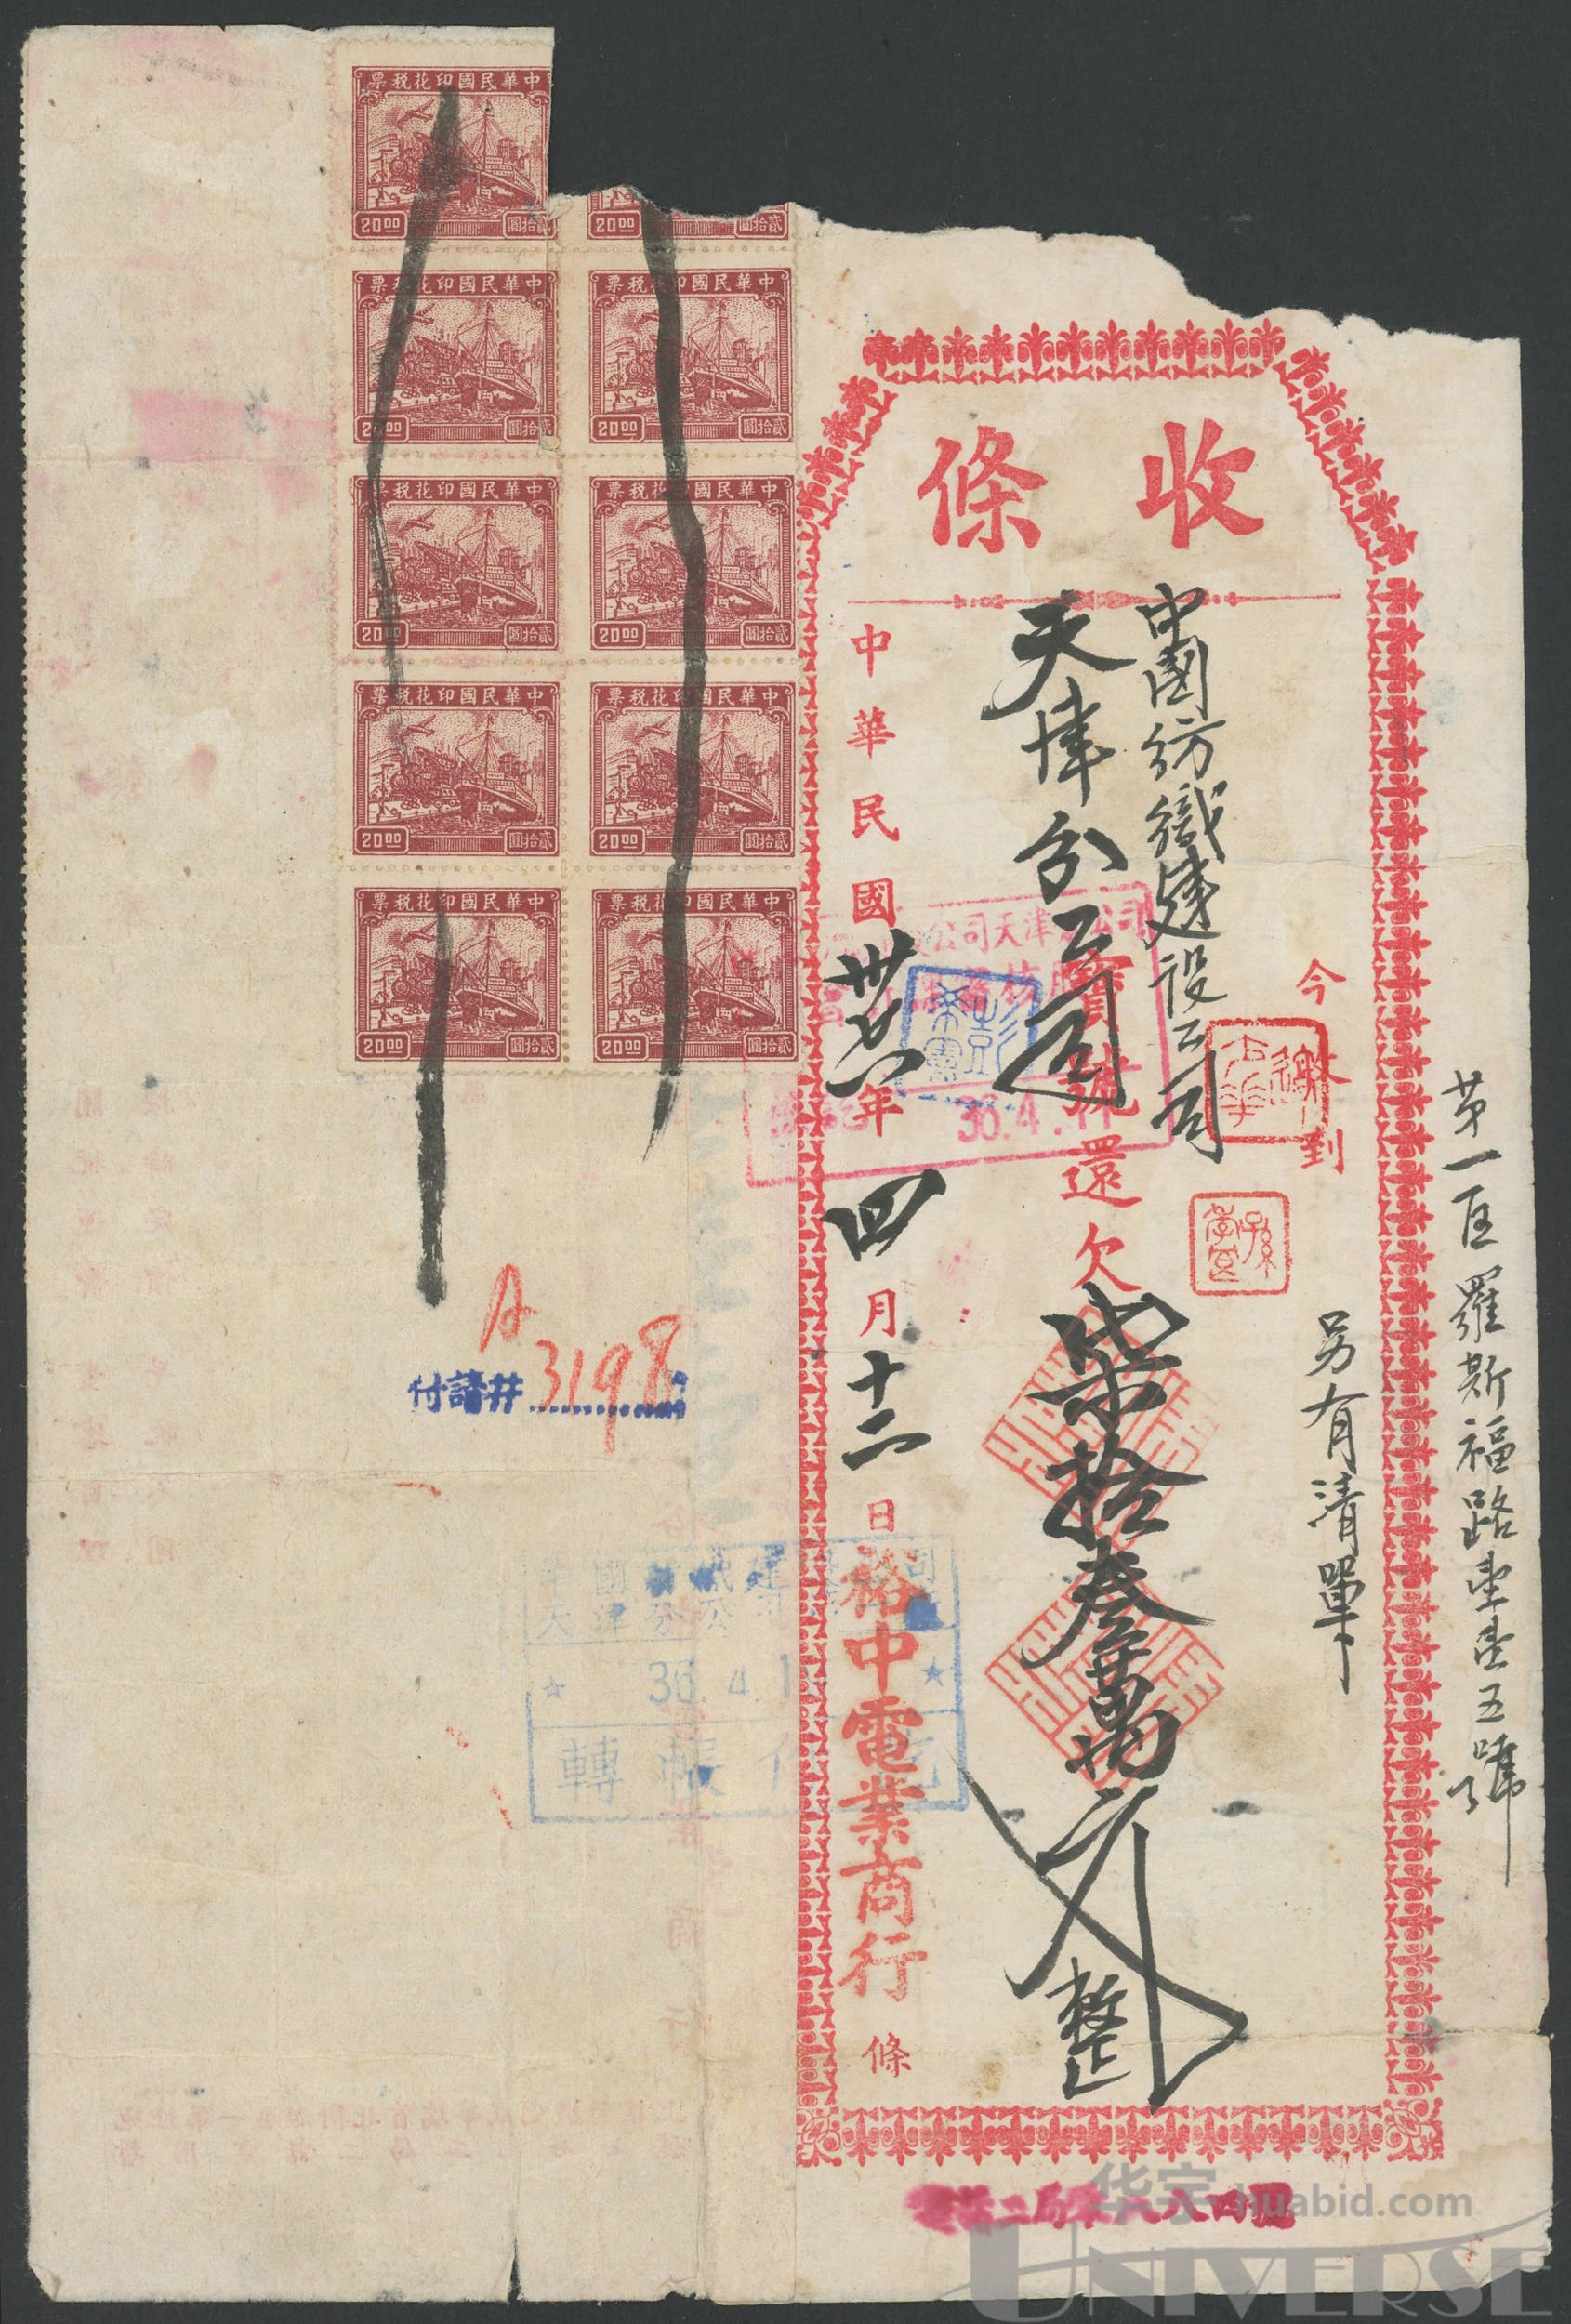 收條
第一区羅斯福路壹壹五號
今收到
另有清單
中國紡織建設公司
天津分公司寶號還欠
柒拾叁萬元整
中華民國卅六年四月十二日裕中電業商行條
36.4.
中華民國印花税票
20 00
貳拾圓
20 00
貳拾圓
中華民國印花税票
20 00
貳拾圓
中華民國印花税票
20 00
貳拾圓
中華民國印花税票
20 00
貳拾圓
中華民國印花税票
20 00
貳拾圓
中華民國印花税票
20 00
貳拾圓
中華民國印花税票
20 00
貳拾圓
中華民國印花税票
20 00
貳拾圓
中華民國印花税票
20 00
貳拾圓
A
付請井 3198
天津分公司
36.4.1
轉帳付訖
华宇 huabid.com
UNIVERSE